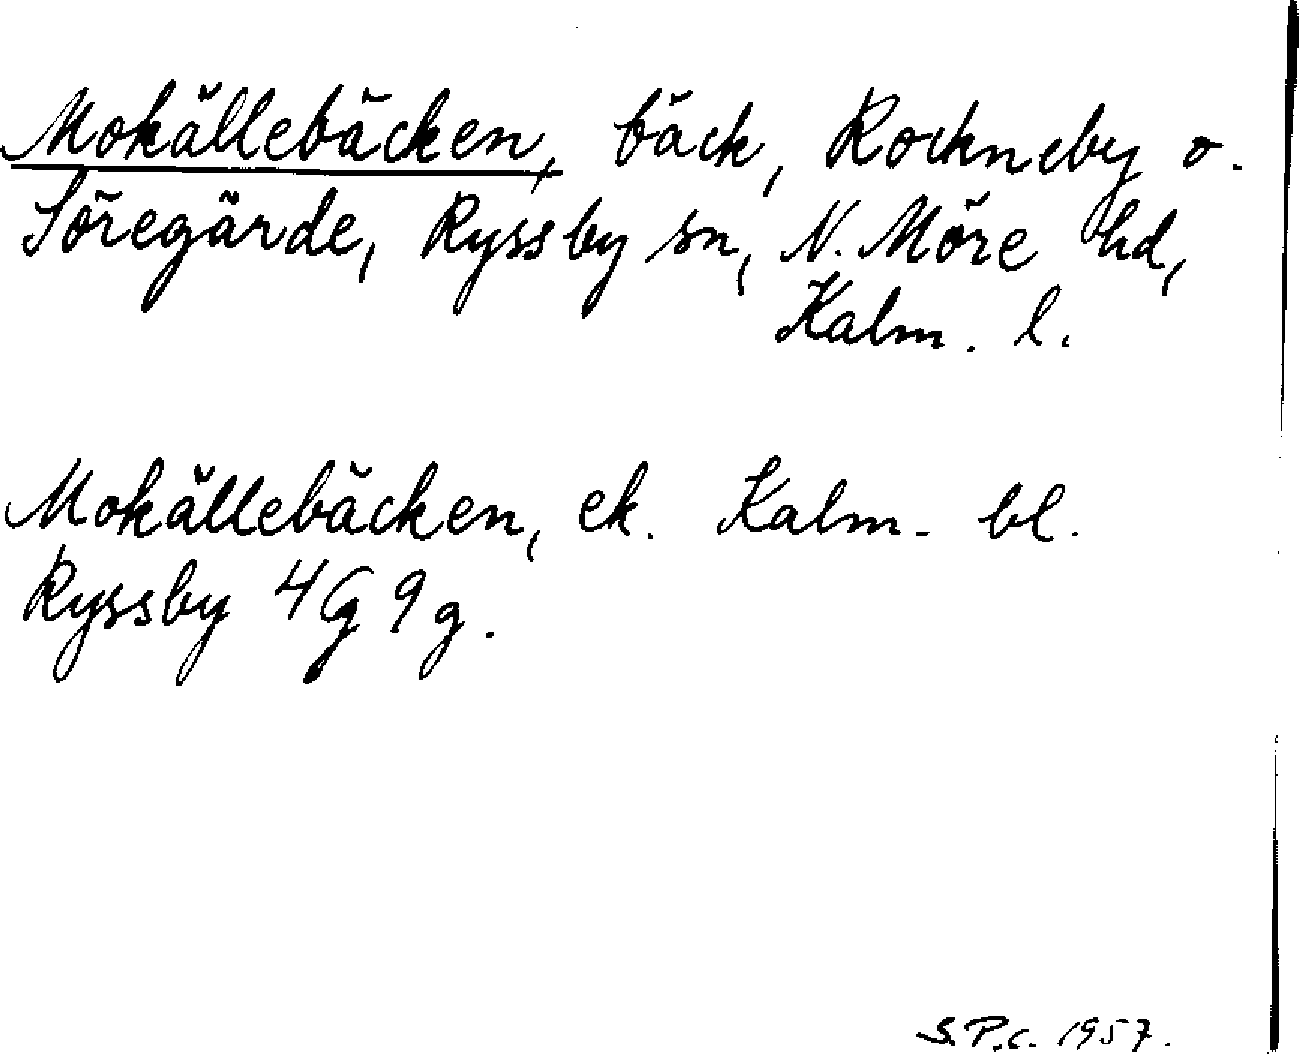 Mokällebäcken, bäck, Rockneby o.
Söregärde, Ryssby sn, N. Möre hd,
Kalm. l.
Mokällebäcken, ek. Kalm. bl.
Ryssby 4G 9g.
S.P.C. 1957.